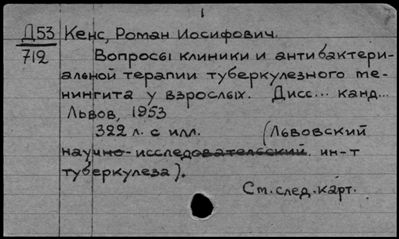 1
Д53 Кенс, Роман Иосифович.
712 Вопросы клиники и антибактери-
альной терапии туберкулезного ме-
нингита у взрослых. Дисс... канд...
Львов, 1953
322 л. с илл. (Львовский
научно-исследовательский ин-т
туберкулеза).
См. след. карт.